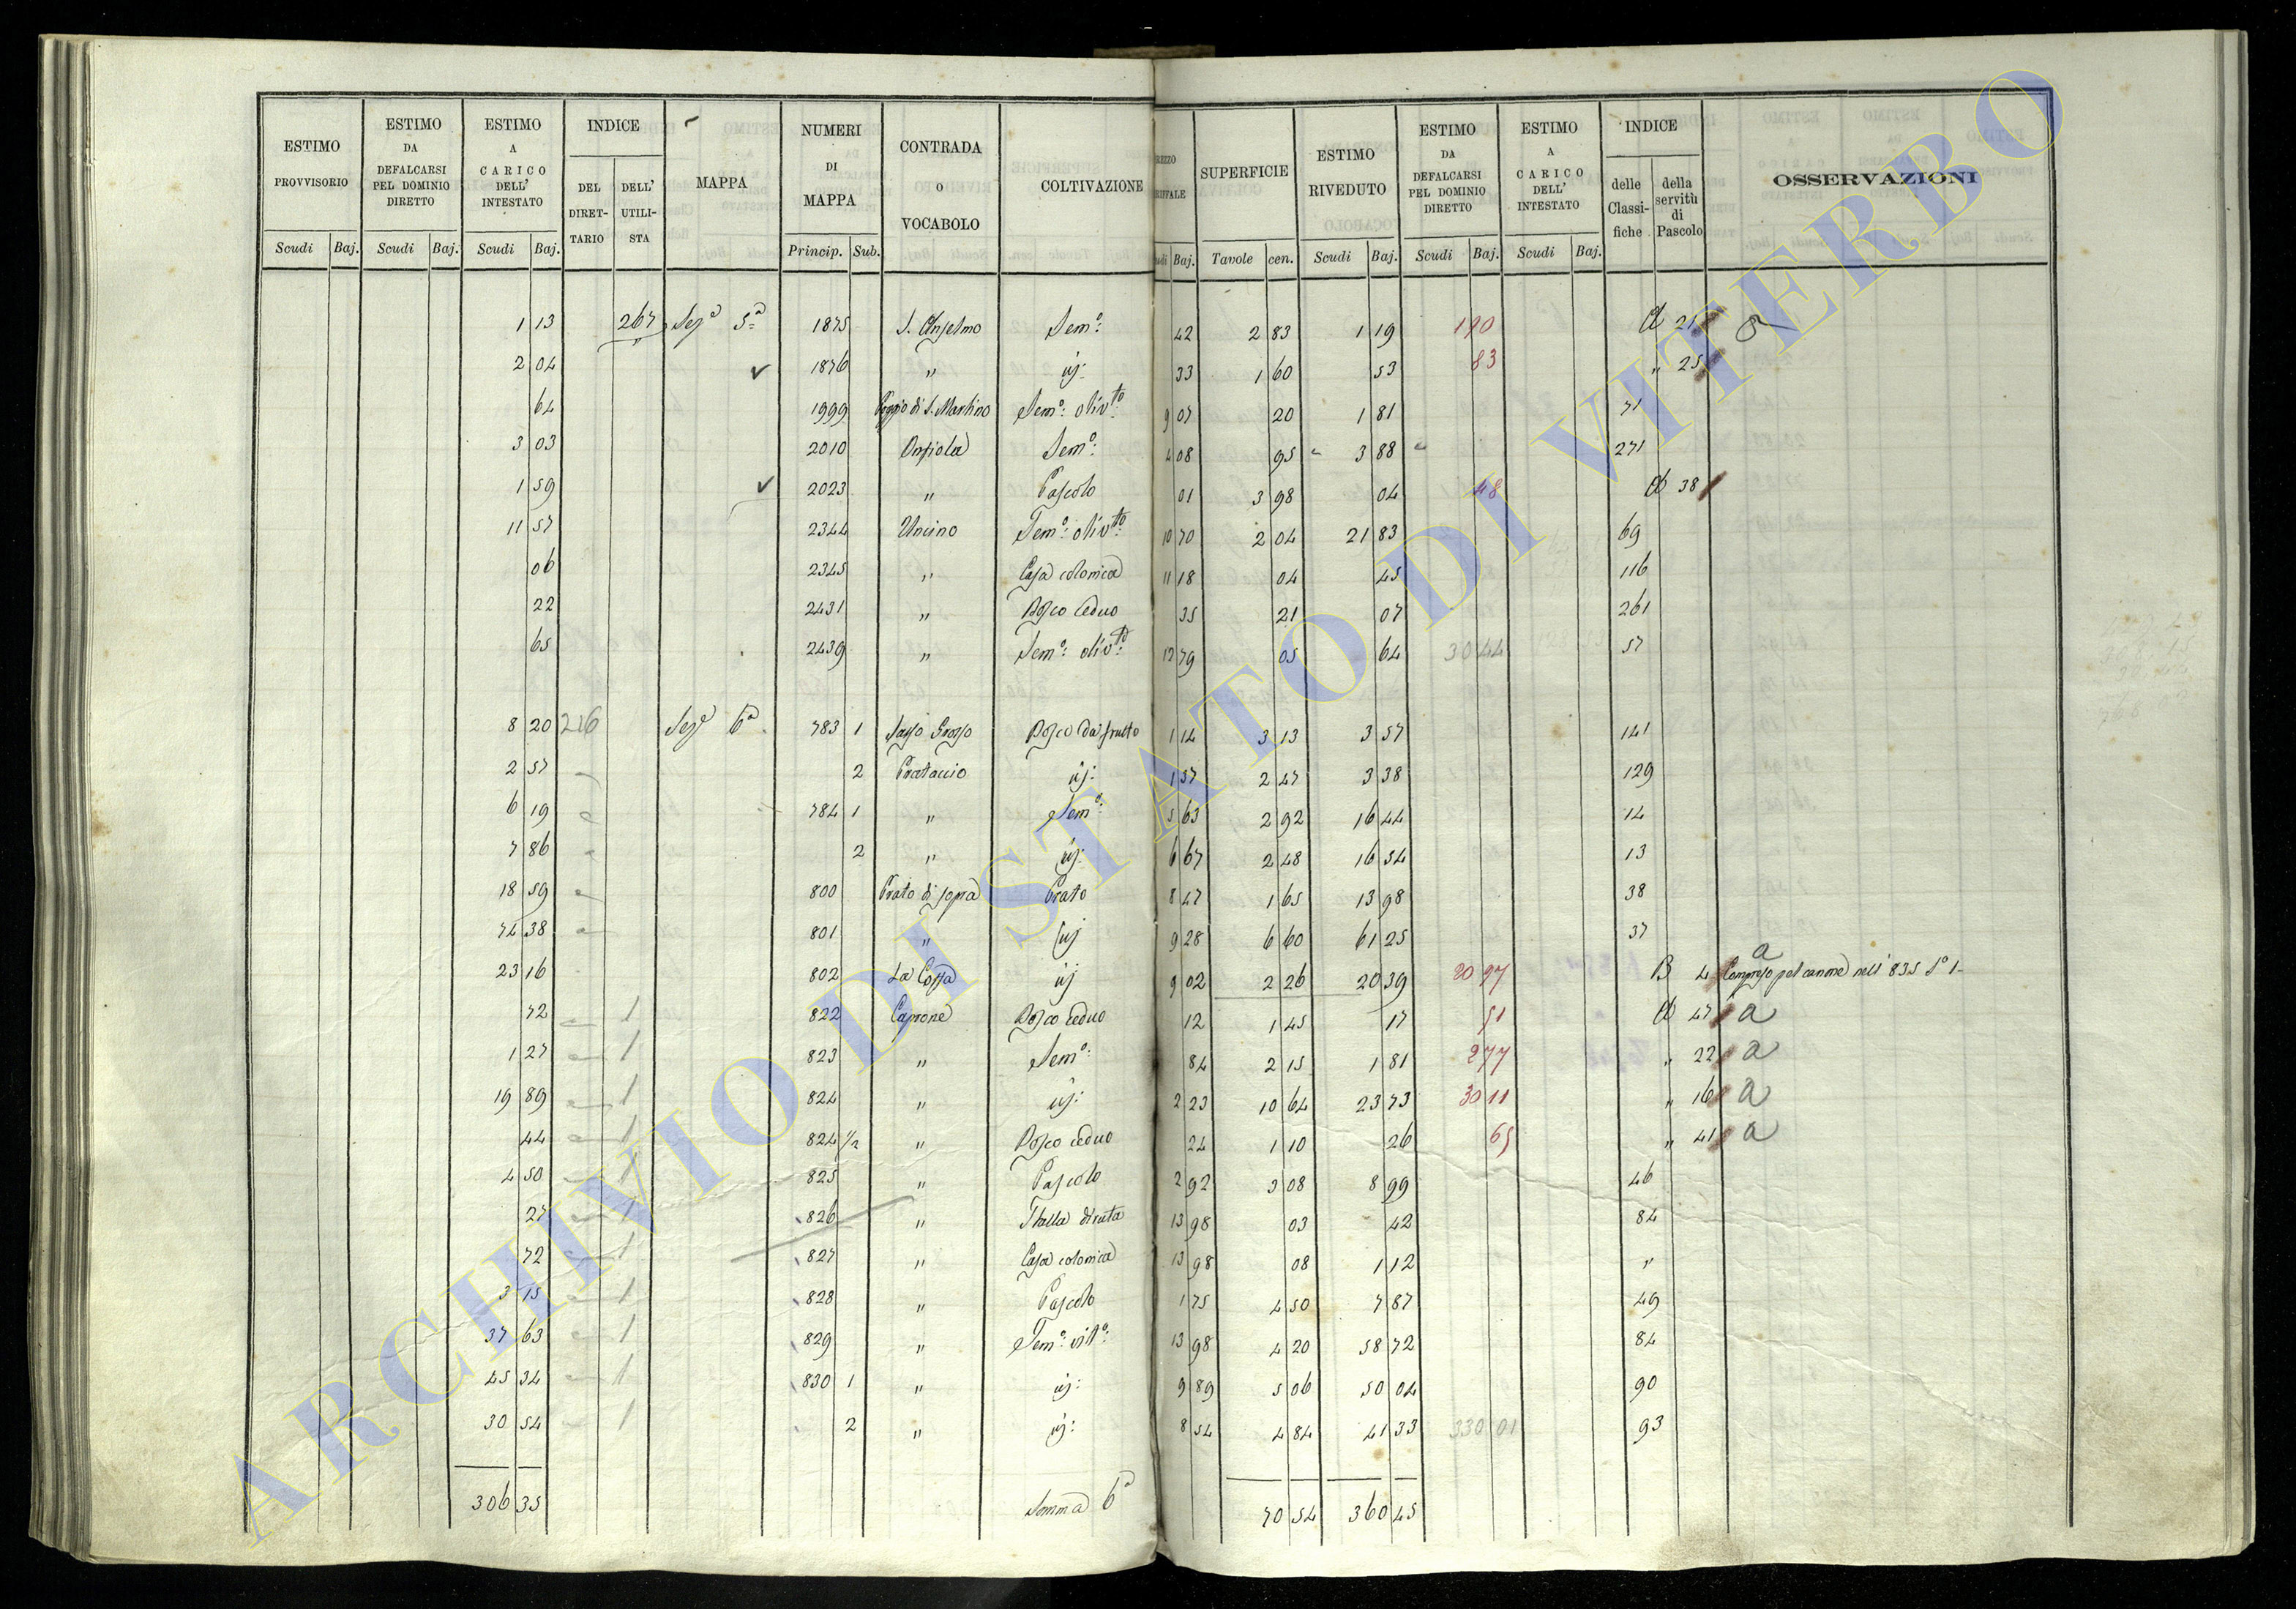 ESTIMO PROVVISORIO | ESTIMO DA DEFALCARSI PEL DOMINIO DIRETTO | ESTIMO A CARICO DELL' INTESTATO | INDICE DEL DIRET- TARIO | DELL' UTILI- STA | MAPPA | NUMERI DI MAPPA | CONTRADA O VOCABOLO | COLTIVAZIONE | SUPERFICIE | ESTIMO RIVEDUTO | ESTIMO DA DEFALCARSI PEL DOMINIO DIRETTO | ESTIMO A CARICO DELL' INTESTATO | INDICE delle Classi- fiche | della servitù di Pascolo | OSSERVAZIONI
Scudi Baj. | Scudi Baj. | Scudi Baj. | Princip. Sub. | Baj. | Tavole cen. | Scudi Baj. | Scudi Baj. | Scudi Baj.
1 13 267 Seze 5a 1875 S. Anselmo Semo: 42 2 83 1 19 190 A 21
2 04 1876 " id: 33 1 60 53 83 " 25
64 1999 Poggio di S. Martino Semo: olivto: 9 07 20 1 81 71
3 03 2010 Onfiola Semo: 4 08 95 3 88 271
1 59 2023 " Pascolo 01 3 98 04 48 A 38
11 57 2344 Uncino Semo: olivto: 10 70 2 04 21 83 69
06 2345 " Casa colonica 11 18 04 45 116
22 2431 " Bosco ceduo 35 21 07 261
65 2439 " Semo: olivto: 12 79 05 64 30 44 57
8 20 216 Seze 6a 783 1 Sasso Grosso Bosco da frutto 1 14 3 13 3 57 141
2 57 2 Prataccio id: 1 37 2 47 3 38 129
6 19 784 1 " Semo: 5 63 2 92 16 44 14
7 86 2 " id: 6 67 2 48 16 54 13
18 59 800 Prato di sopra Prato 8 47 1 65 13 98 38
74 38 801 " id 9 28 6 60 61 25 37
23 16 802 La Cossa id 9 02 2 26 20 39 20 97 B 4 Compreso pel canone nell' 835 S° 1 a
72 1 822 Caprone Bosco ceduo 12 1 45 17 51 A 47 a
1 27 1 823 " Semo: 84 2 15 1 81 2 77 " 22 a
19 89 1 824 " id: 2 23 10 64 23 73 30 11 " 16 a
44 1 824 1/2 " Bosco ceduo 24 1 10 26 65 " 41 a
4 50 1 825 " Pascolo 2 92 3 08 8 99 46
27 1 826 " Stalla diruta 13 98 03 42 84
72 1 827 " Casa colonica 13 98 08 1 12 "
3 15 1 828 " Pascolo 1 75 4 50 7 87 49
37 63 1 829 " Semo: vito: 13 98 4 20 58 72 84
45 34 1 830 1 " id: 9 89 5 06 50 04 90
30 54 1 2 " id: 8 54 4 84 41 33 330 01 93
306 35 Somma 6a 70 54 360 45
ARCHIVIO DI STATO DI VITERBO